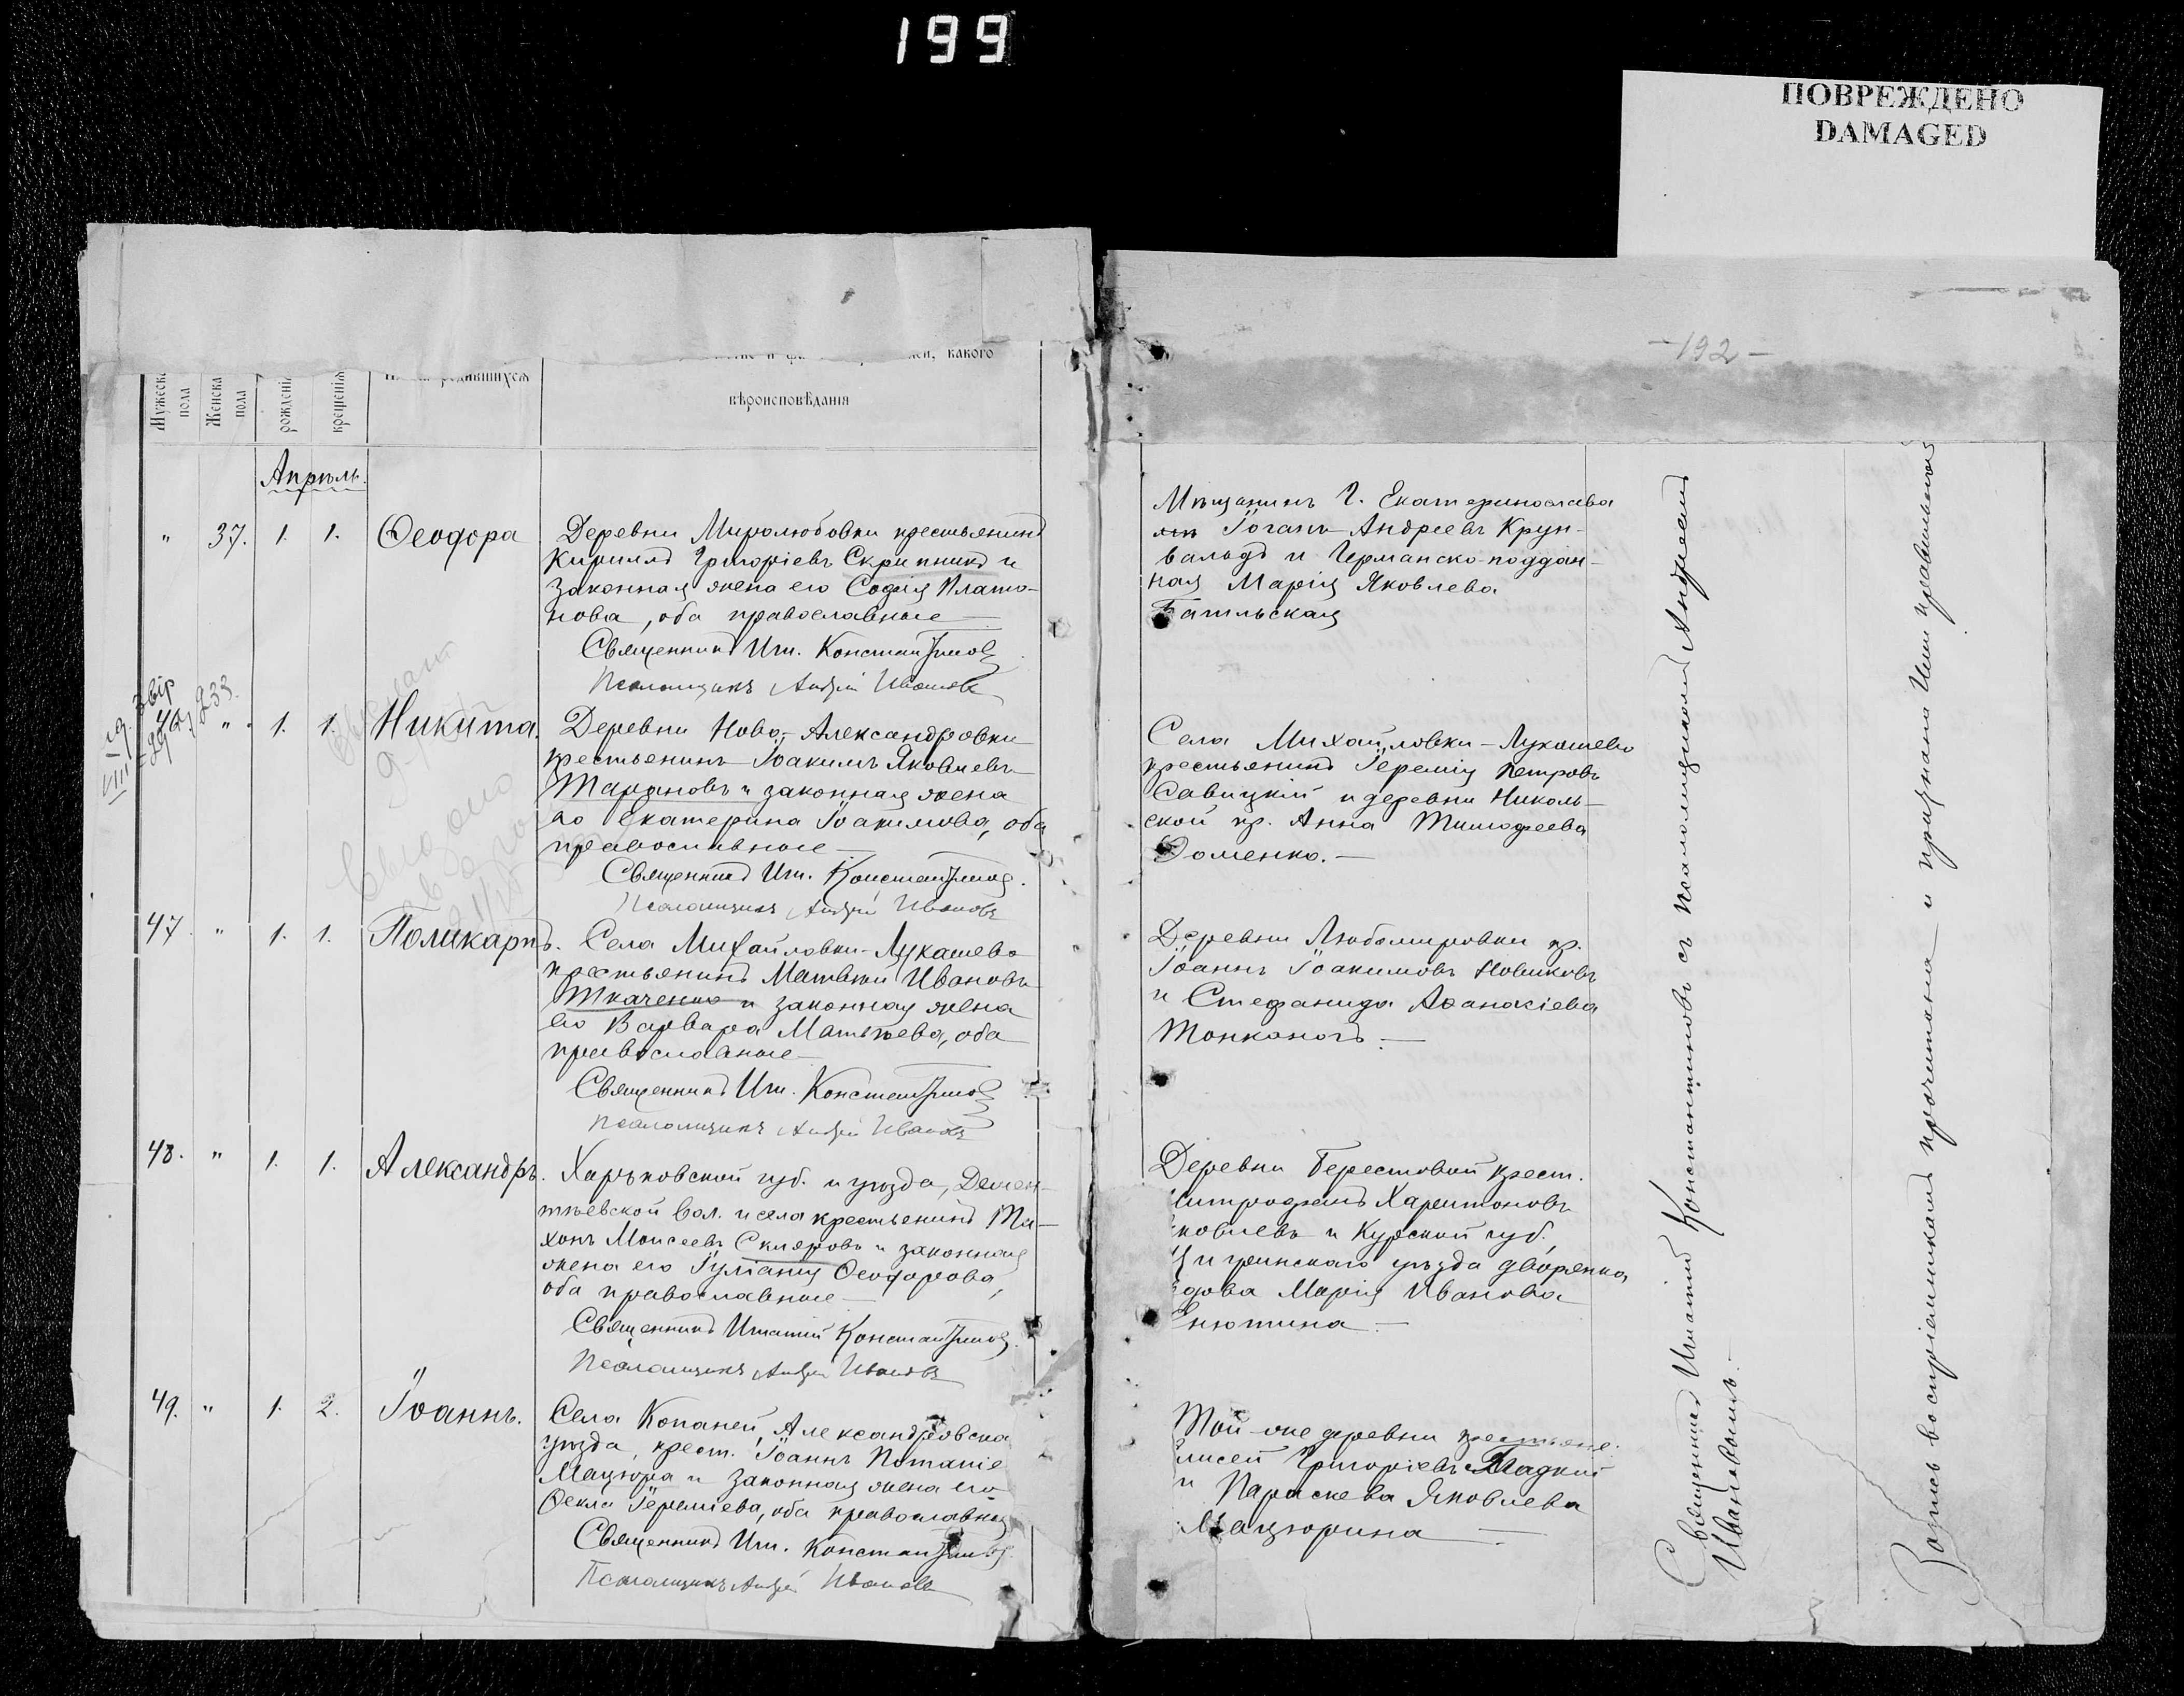 199
ПОВРЕЖДЕНО
DAMAGED
-192-
какого
Мужеска пола
Женска пола
рожденія
крещенія
родившихся
вѣроисповѣданія
Апрѣль.
" 37. 1. 1. Ѳеодора
Деревни Миролюбовки крестьянинъ
Кириллъ Григоріевъ Скрипникъ и
законная жена его Софія Плато-
нова, оба православные
Священникъ Игн. Константинов
Псаломщикъ Андрей Ивановъ
46 " 1. 1. Никита.
Деревни Ново-Александровки
крестьянинъ Іоакимъ Яковлевъ
Тарановъ и законная жена
его Екатерина Іоакимова, оба
православные
Священникъ Игн. Константинов.
Псаломщикъ Андрей Ивановъ
47 " 1. 1. Поликарпъ.
Села Михайловки-Лукашево
крестьянинъ Матвѣй Ивановъ
Ткаченко и законная жена
его Варвара Матвѣева, оба
православные
Священникъ Игн. Константинов
Псаломщикъ Андрей Ивановъ
48. " 1. 1. Александръ.
Харьковской губ. и уѣзда, Демен-
тѣевской вол. и села крестьянинъ Ти-
хонъ Моисеевъ Скляровъ и законная
жена его Іуліанія Ѳеодорова,
оба православные
Священникъ Игнатій Константинов.
Псаломщикъ Андрей Ивановъ
49. " 1. 2. Іоаннъ.
Села Копаней, Александровска
уѣзда, крест. Іоаннъ Потапіе
Мацюра и законная жена его
Ѳекла Іереміева, оба православны
Священникъ Игн. Константинов.
Псаломщикъ Андрей Ивановъ
Мѣщанинъ г. Екатеринослава
Іоганъ Андреевъ Крун-
вальдъ и Германско-поддан-
ная Марія Яковлева
Села Михайловки-Лукашево
крестьянинъ Іеремія Петровъ
Савицкій и деревни Николь-
ской кр. Анна Тимофеева
Фоменко.
Деревни Любомировки кр.
Іоаннъ Іоакимовъ Новиковъ
и Стефанида Аѳанасіева
Тонконогъ.
Деревни Берестовой крест.
итрофанъ Харитоновъ
ковлевъ и Курской губ.,
Щигринскаго уѣзда дворянка
дова Марія Иванова
Енютина.
Той-же деревни крестьяне:
лисей Григоріевъ Гладкій
и Параскева Яковлева
Мацюрина
Священникъ Игнатій Константиновъ съ псаломщикомъ Андреемъ
Ивановымъ.
Запись воспріемникамъ прочитана и признана Ими правильной